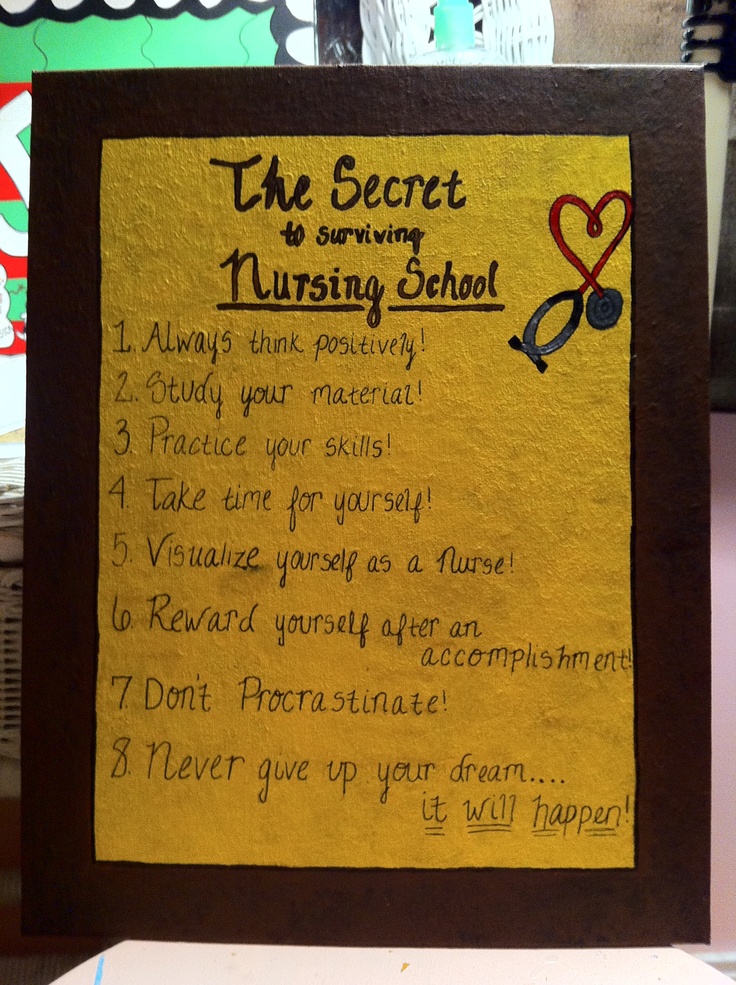 The Secret
to surviving
Nursing School
1. Always think positively!
2. Study your material!
3. Practice your skills!
4. Take time for yourself!
5. Visualize yourself as a Nurse!
6. Reward yourself after an
accomplishment!
7. Don't Procrastinate!
8. Never give up your dream....
it will happen!